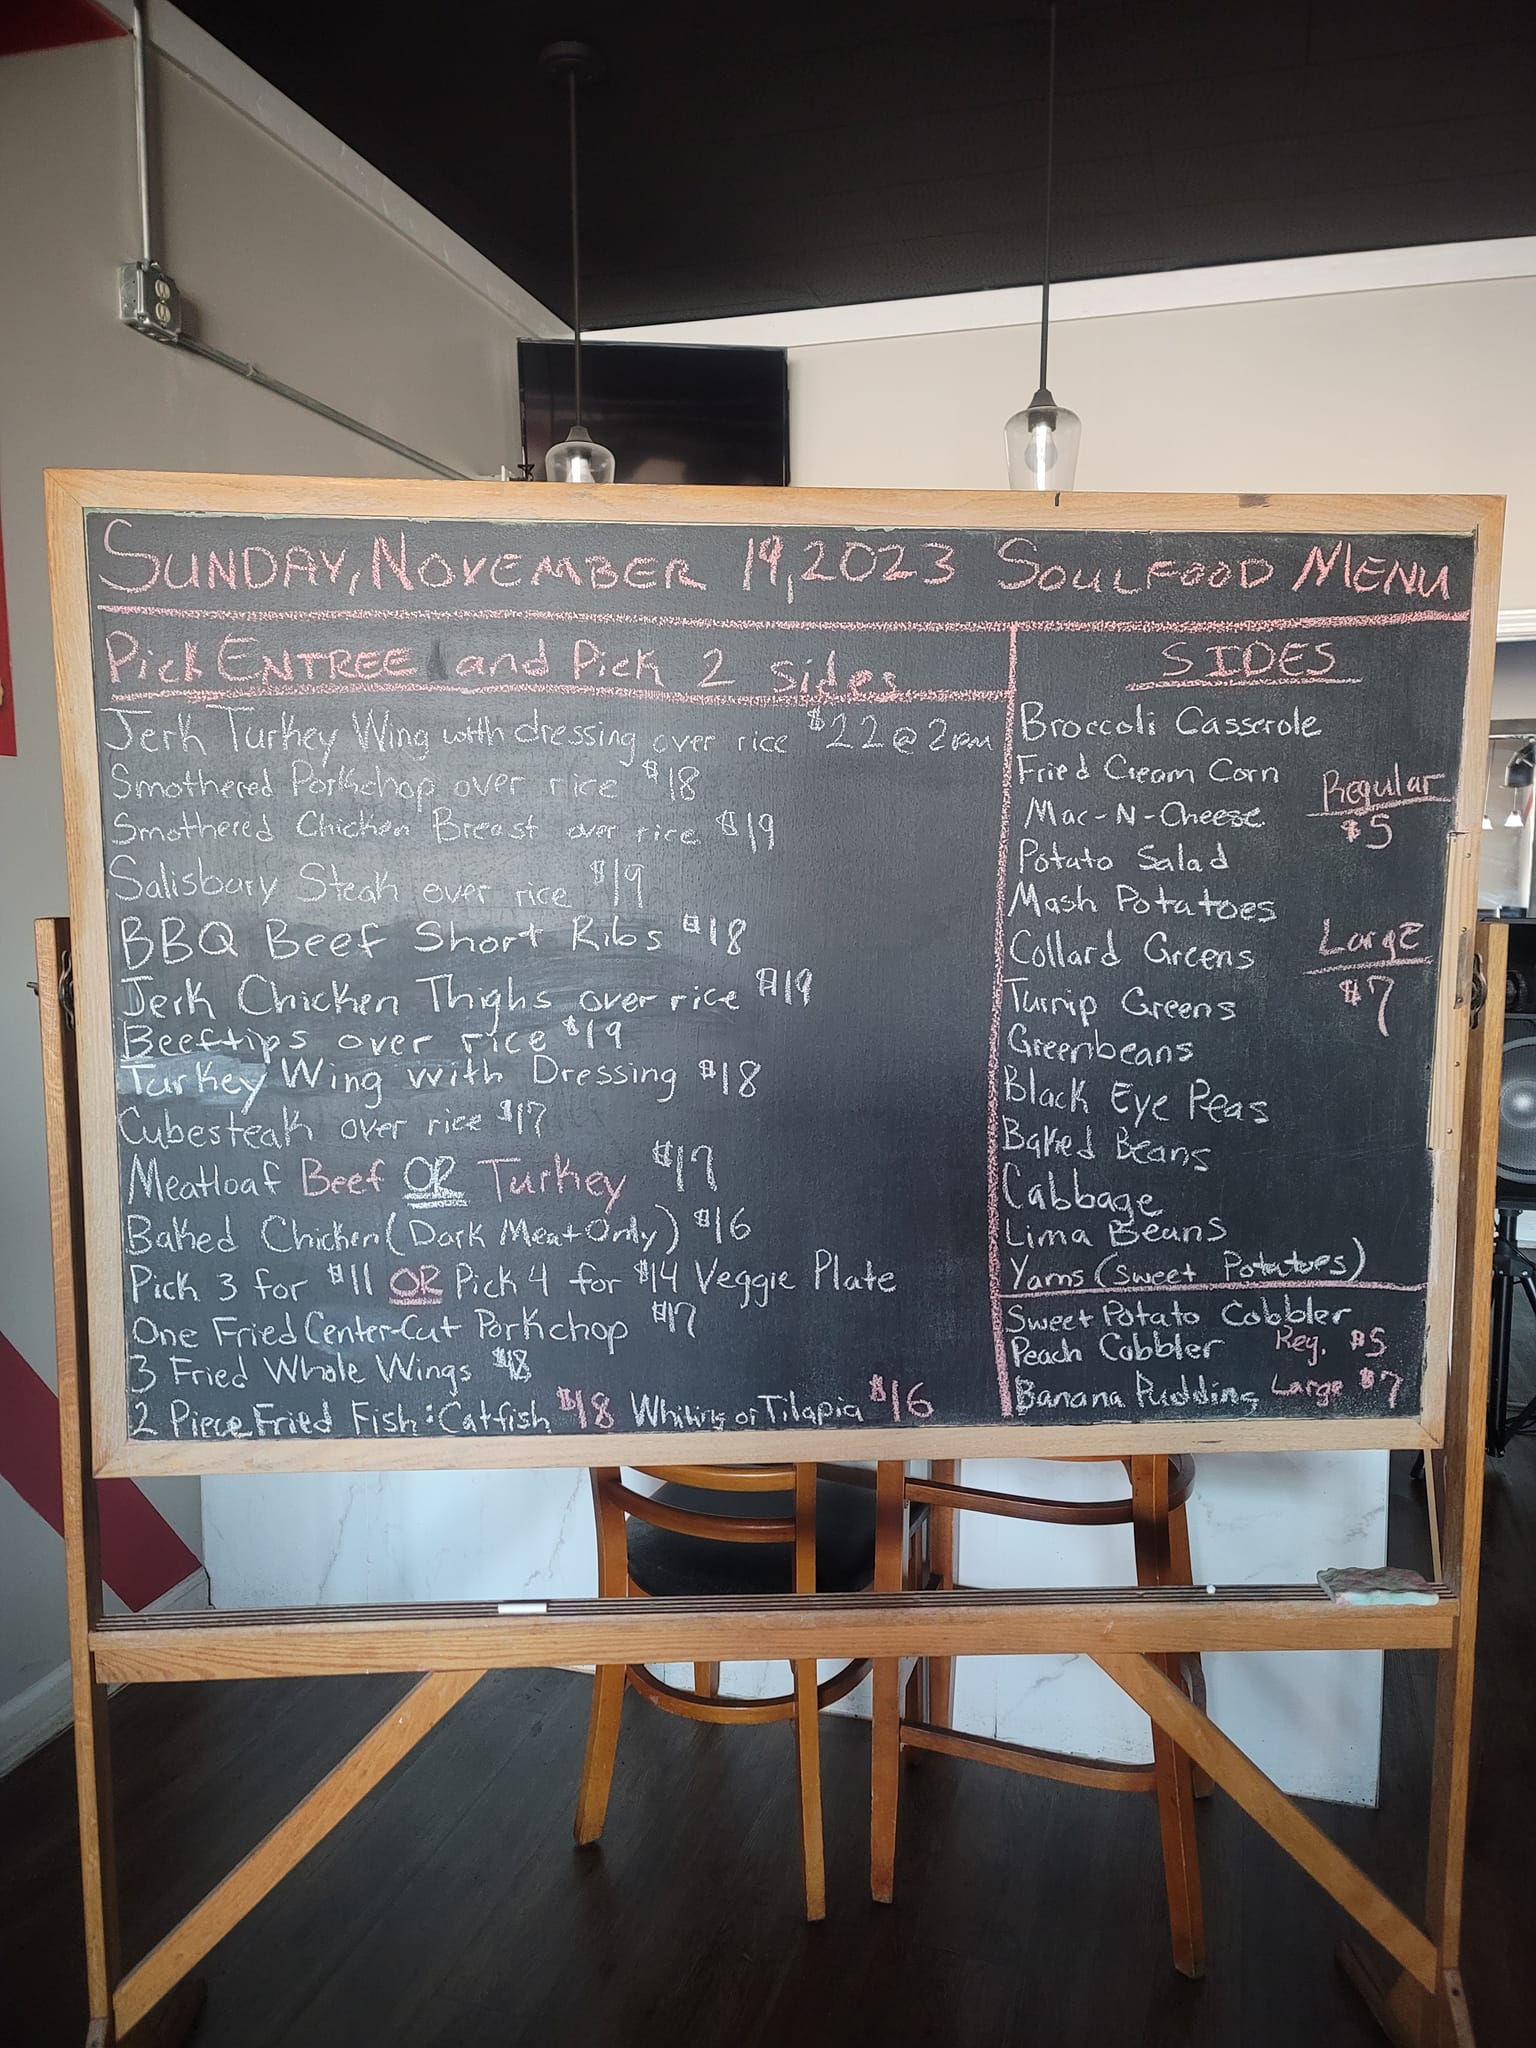 SUNDAY, NOVEMBER 19, 2023 SOULFOOD MENU
Pick ENTREE and Pick 2 sides
Jerk Turkey Wing with dressing over rice $22 @ 2pm
Smothered Porkchop over rice $18
Smothered Chicken Breast over rice $19
Salisbury Steak over rice $19
BBQ Beef Short Ribs $18
Jerk Chicken Thighs over rice $19
Beeftips over rice $19
Turkey Wing with Dressing $18
Cubesteak over rice $17
Meatloaf Beef OR Turkey $17
Baked Chicken (Dark Meat Only) $16
Pick 3 for $11 OR Pick 4 for $14 Veggie Plate
One Fried Center-Cut Porkchop $17
3 Fried Whole Wings $18
2 Piece Fried Fish: Catfish $18 Whiting or Tilapia $16
SIDES
Broccoli Casserole
Fried Cream Corn
Mac-N-Cheese
Potato Salad
Mash Potatoes
Collard Greens
Turnip Greens
Greenbeans
Black Eye Peas
Baked Beans
Cabbage
Lima Beans
Yams (Sweet Potatoes)
Regular
$5
Large
$7
Sweet Potato Cobbler
Peach Cobbler Reg. $5
Banana Pudding Large $7